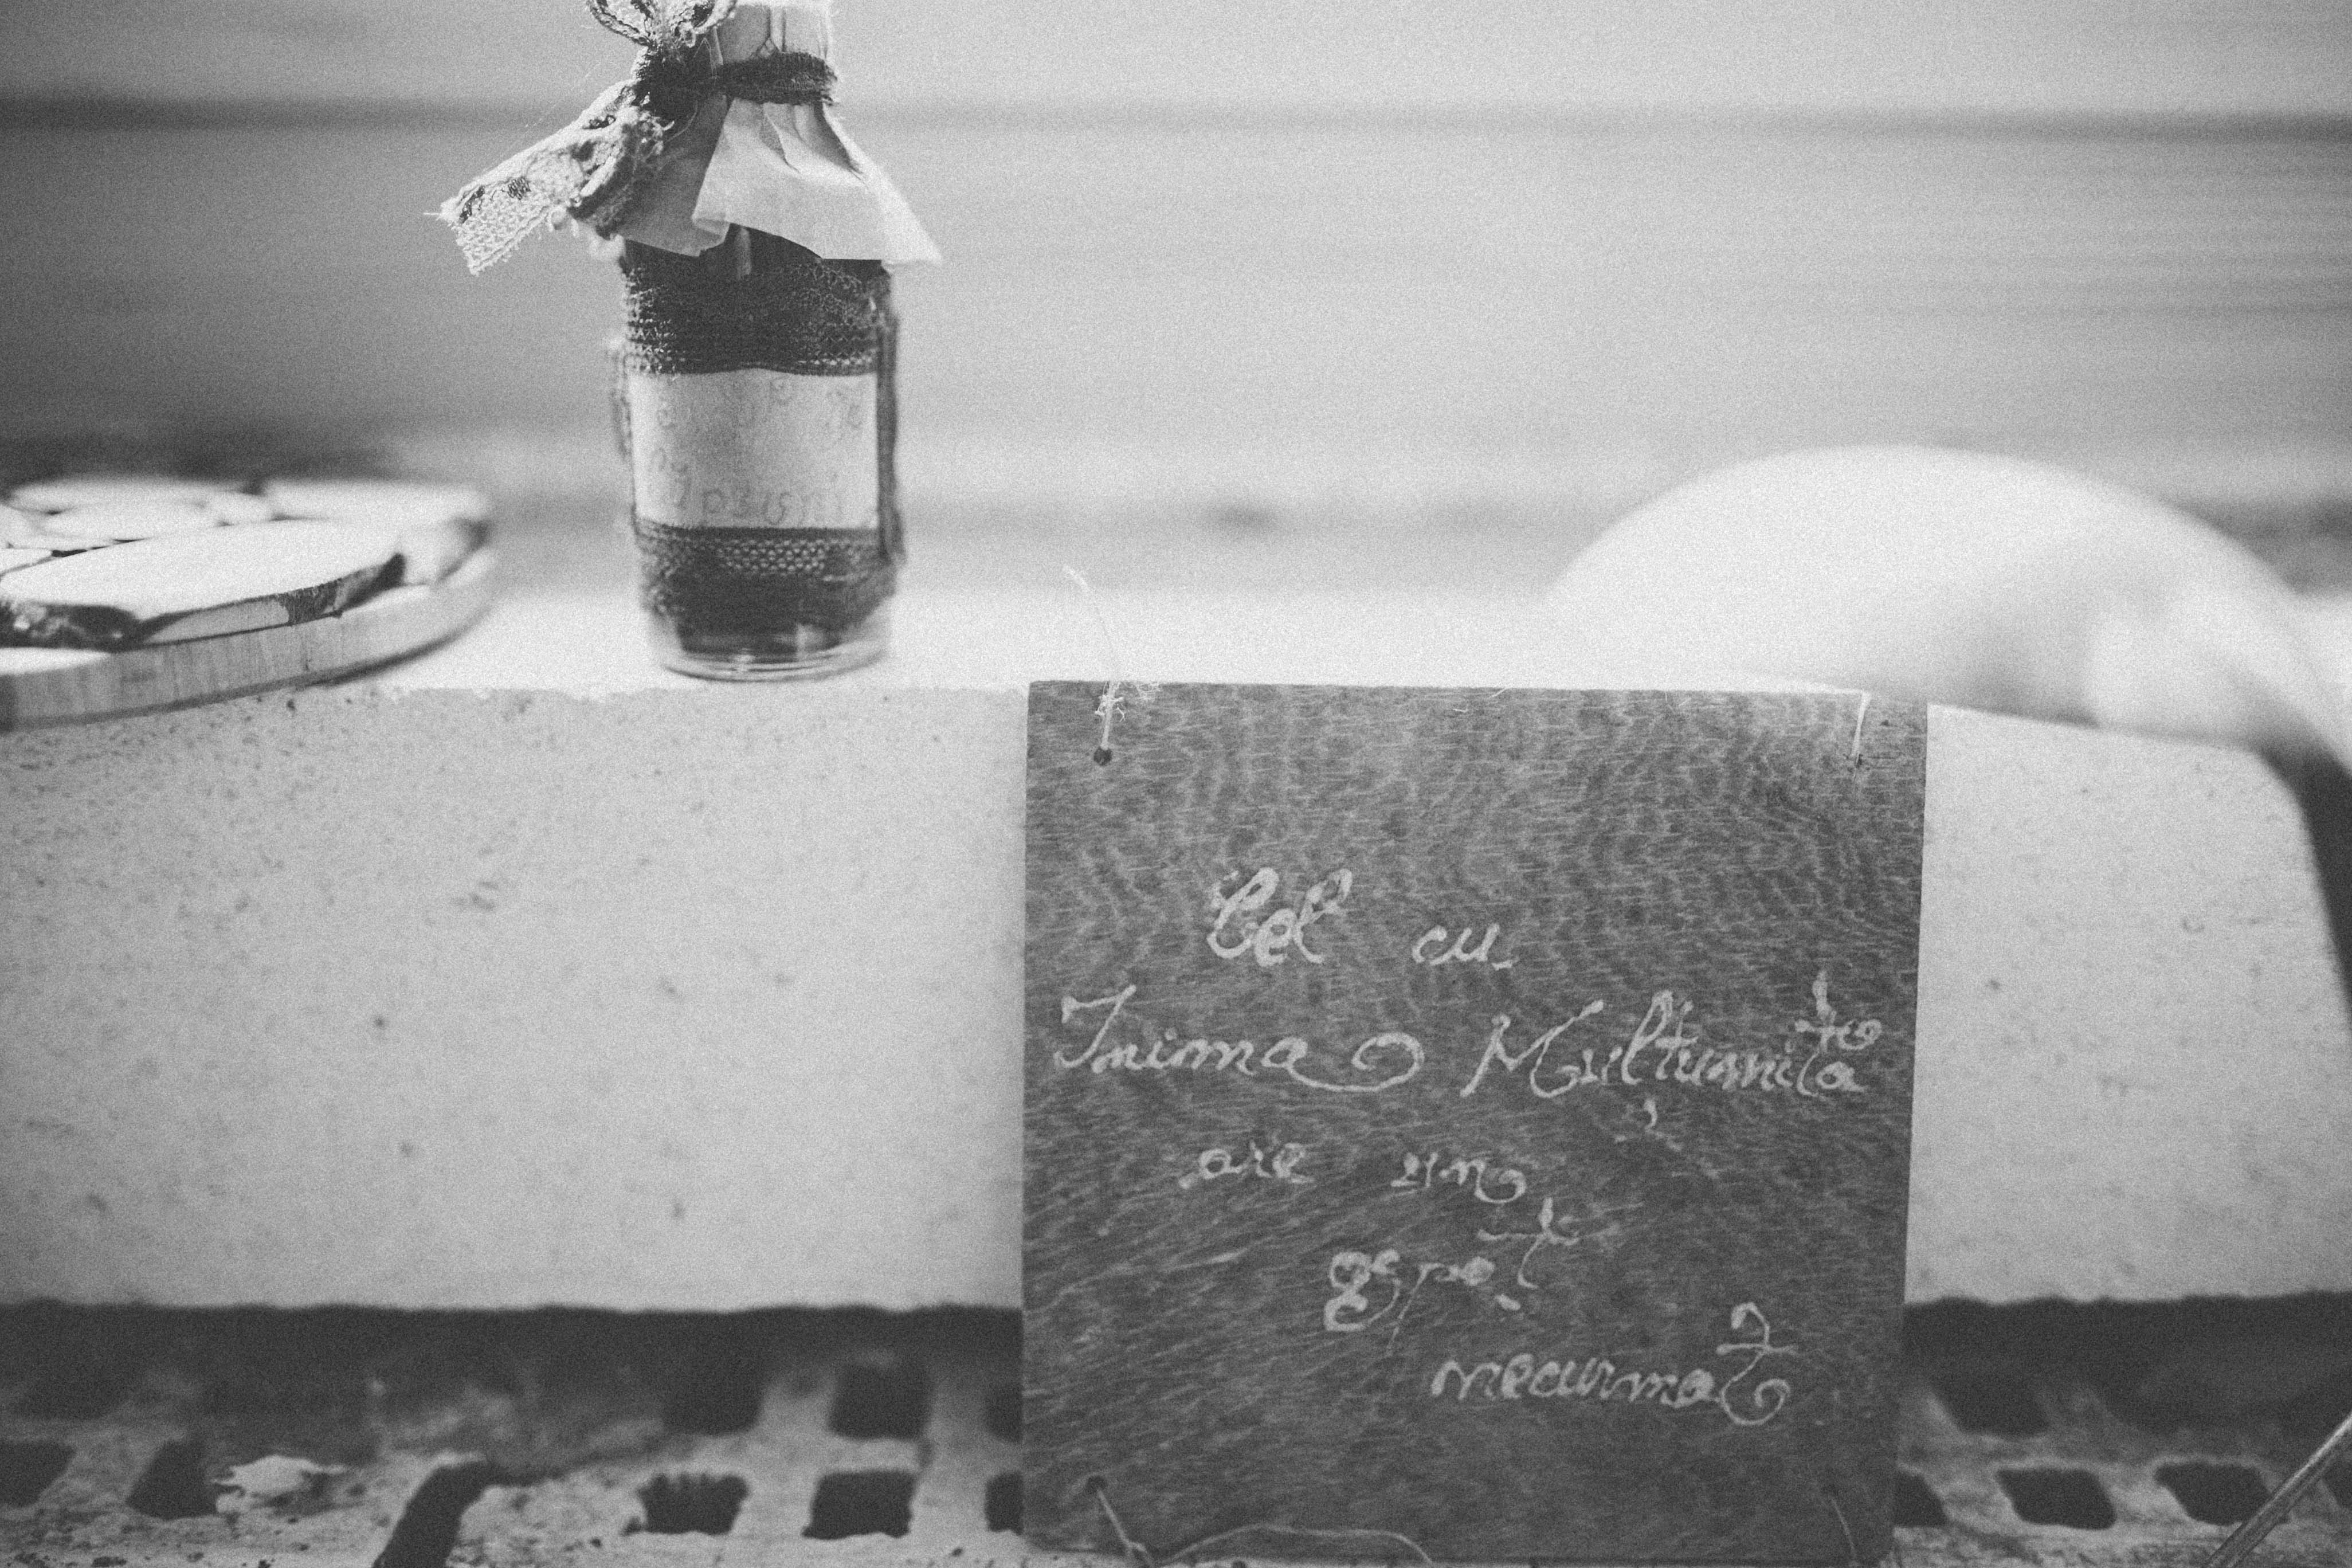 Cel cu
Inima Mulțumită
are un
ospăț
necurmat